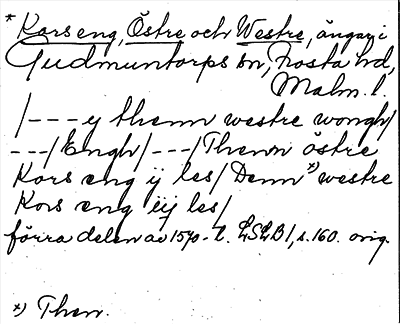 * Kors eng, Östre och Westre, ängar i
Gudmuntorps sn, Frosta hd,
Malm. l.
/---y thenn westre wongh/
--/Engh/---/Thenn östre
Kors eng ij les/Denn *) westre
Kors eng iij les/
förra delen av 1570-t. LSLB 1, s. 160. orig.
*) Then.